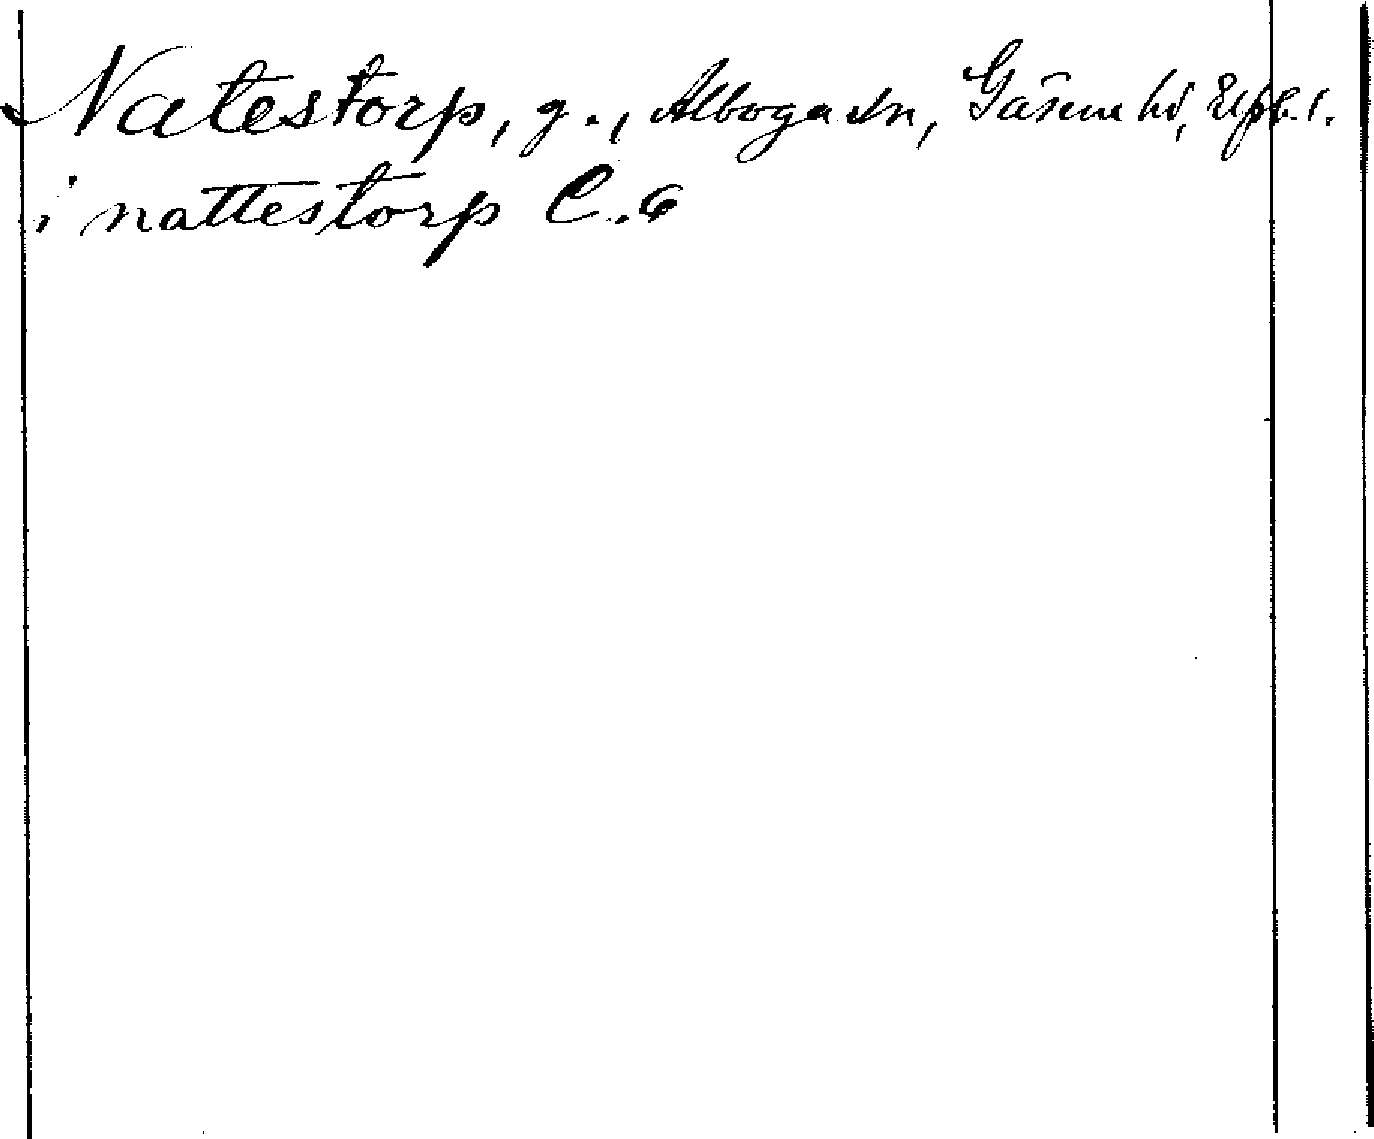 Natestorp, g., Alboga sn, Gäsene hd, Elfsb. l.
i nattestorp C.6